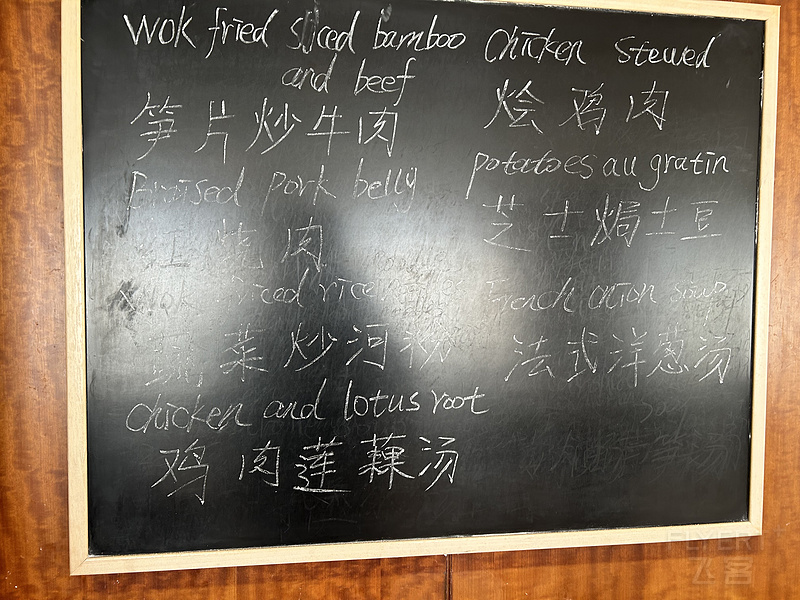 Wok fried sliced bamboo
and beef
笋片炒牛肉
Braised pork belly
红烧肉
Wok fried rice
蔬菜炒河粉
chicken and lotus root
鸡肉莲藕汤
Chicken stewed
烩鸡肉
potatoes au gratin
芝士焗土豆
French onion soup
法式洋葱汤
汤
FLYER
飞客